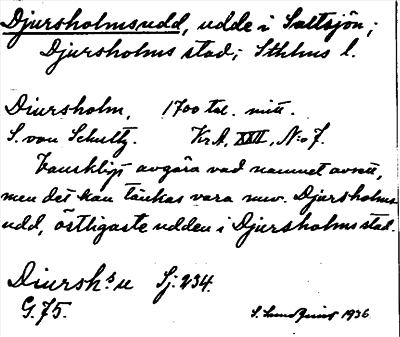 Djursholmsudd, udde i Saltsjön;
Djursholms stad; Sthlms l.
Diursholm, 1700 tal. mitt.
S. von Schultz. Kr.A, XXII, N:o 7.
Vanskligt avgöra vad namnet avsett,
men det kan tänkas vara nuv. Djursholms
udd, östligaste udden i Djursholms stad.
Diursh:s u Sj: 234.
G. 75. 1936